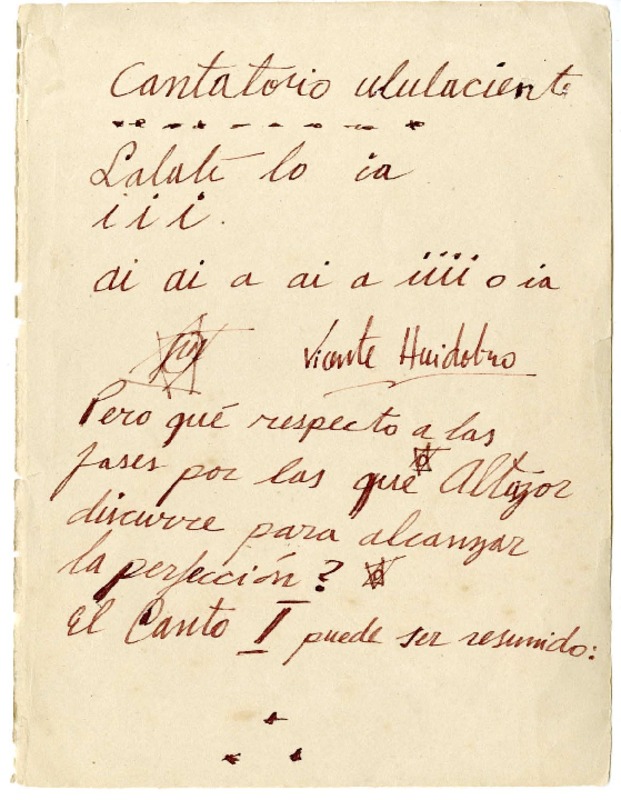 Cantatorio ululaciente
Lalalí lo ia
i i i.
ai ai a ai a iiii o ia
Vicente Huidobro
Pero qué respecto a las
fases por las que Altazor
discurre para alcanzar
la perfección?
El Canto I puede ser resumido: